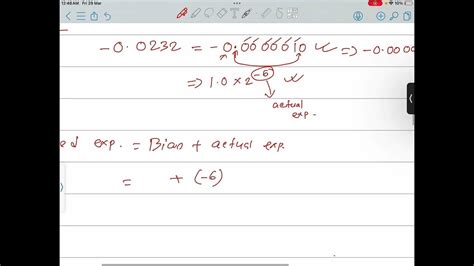 12:48 AM Fri 29 Mar
-0.0232 = -0.0000010 ✓ => -0.0000
=> 1.0 × 2^-6 ✓
actual
exp.
ed exp. = Bias + actual exp.
= + (-6)